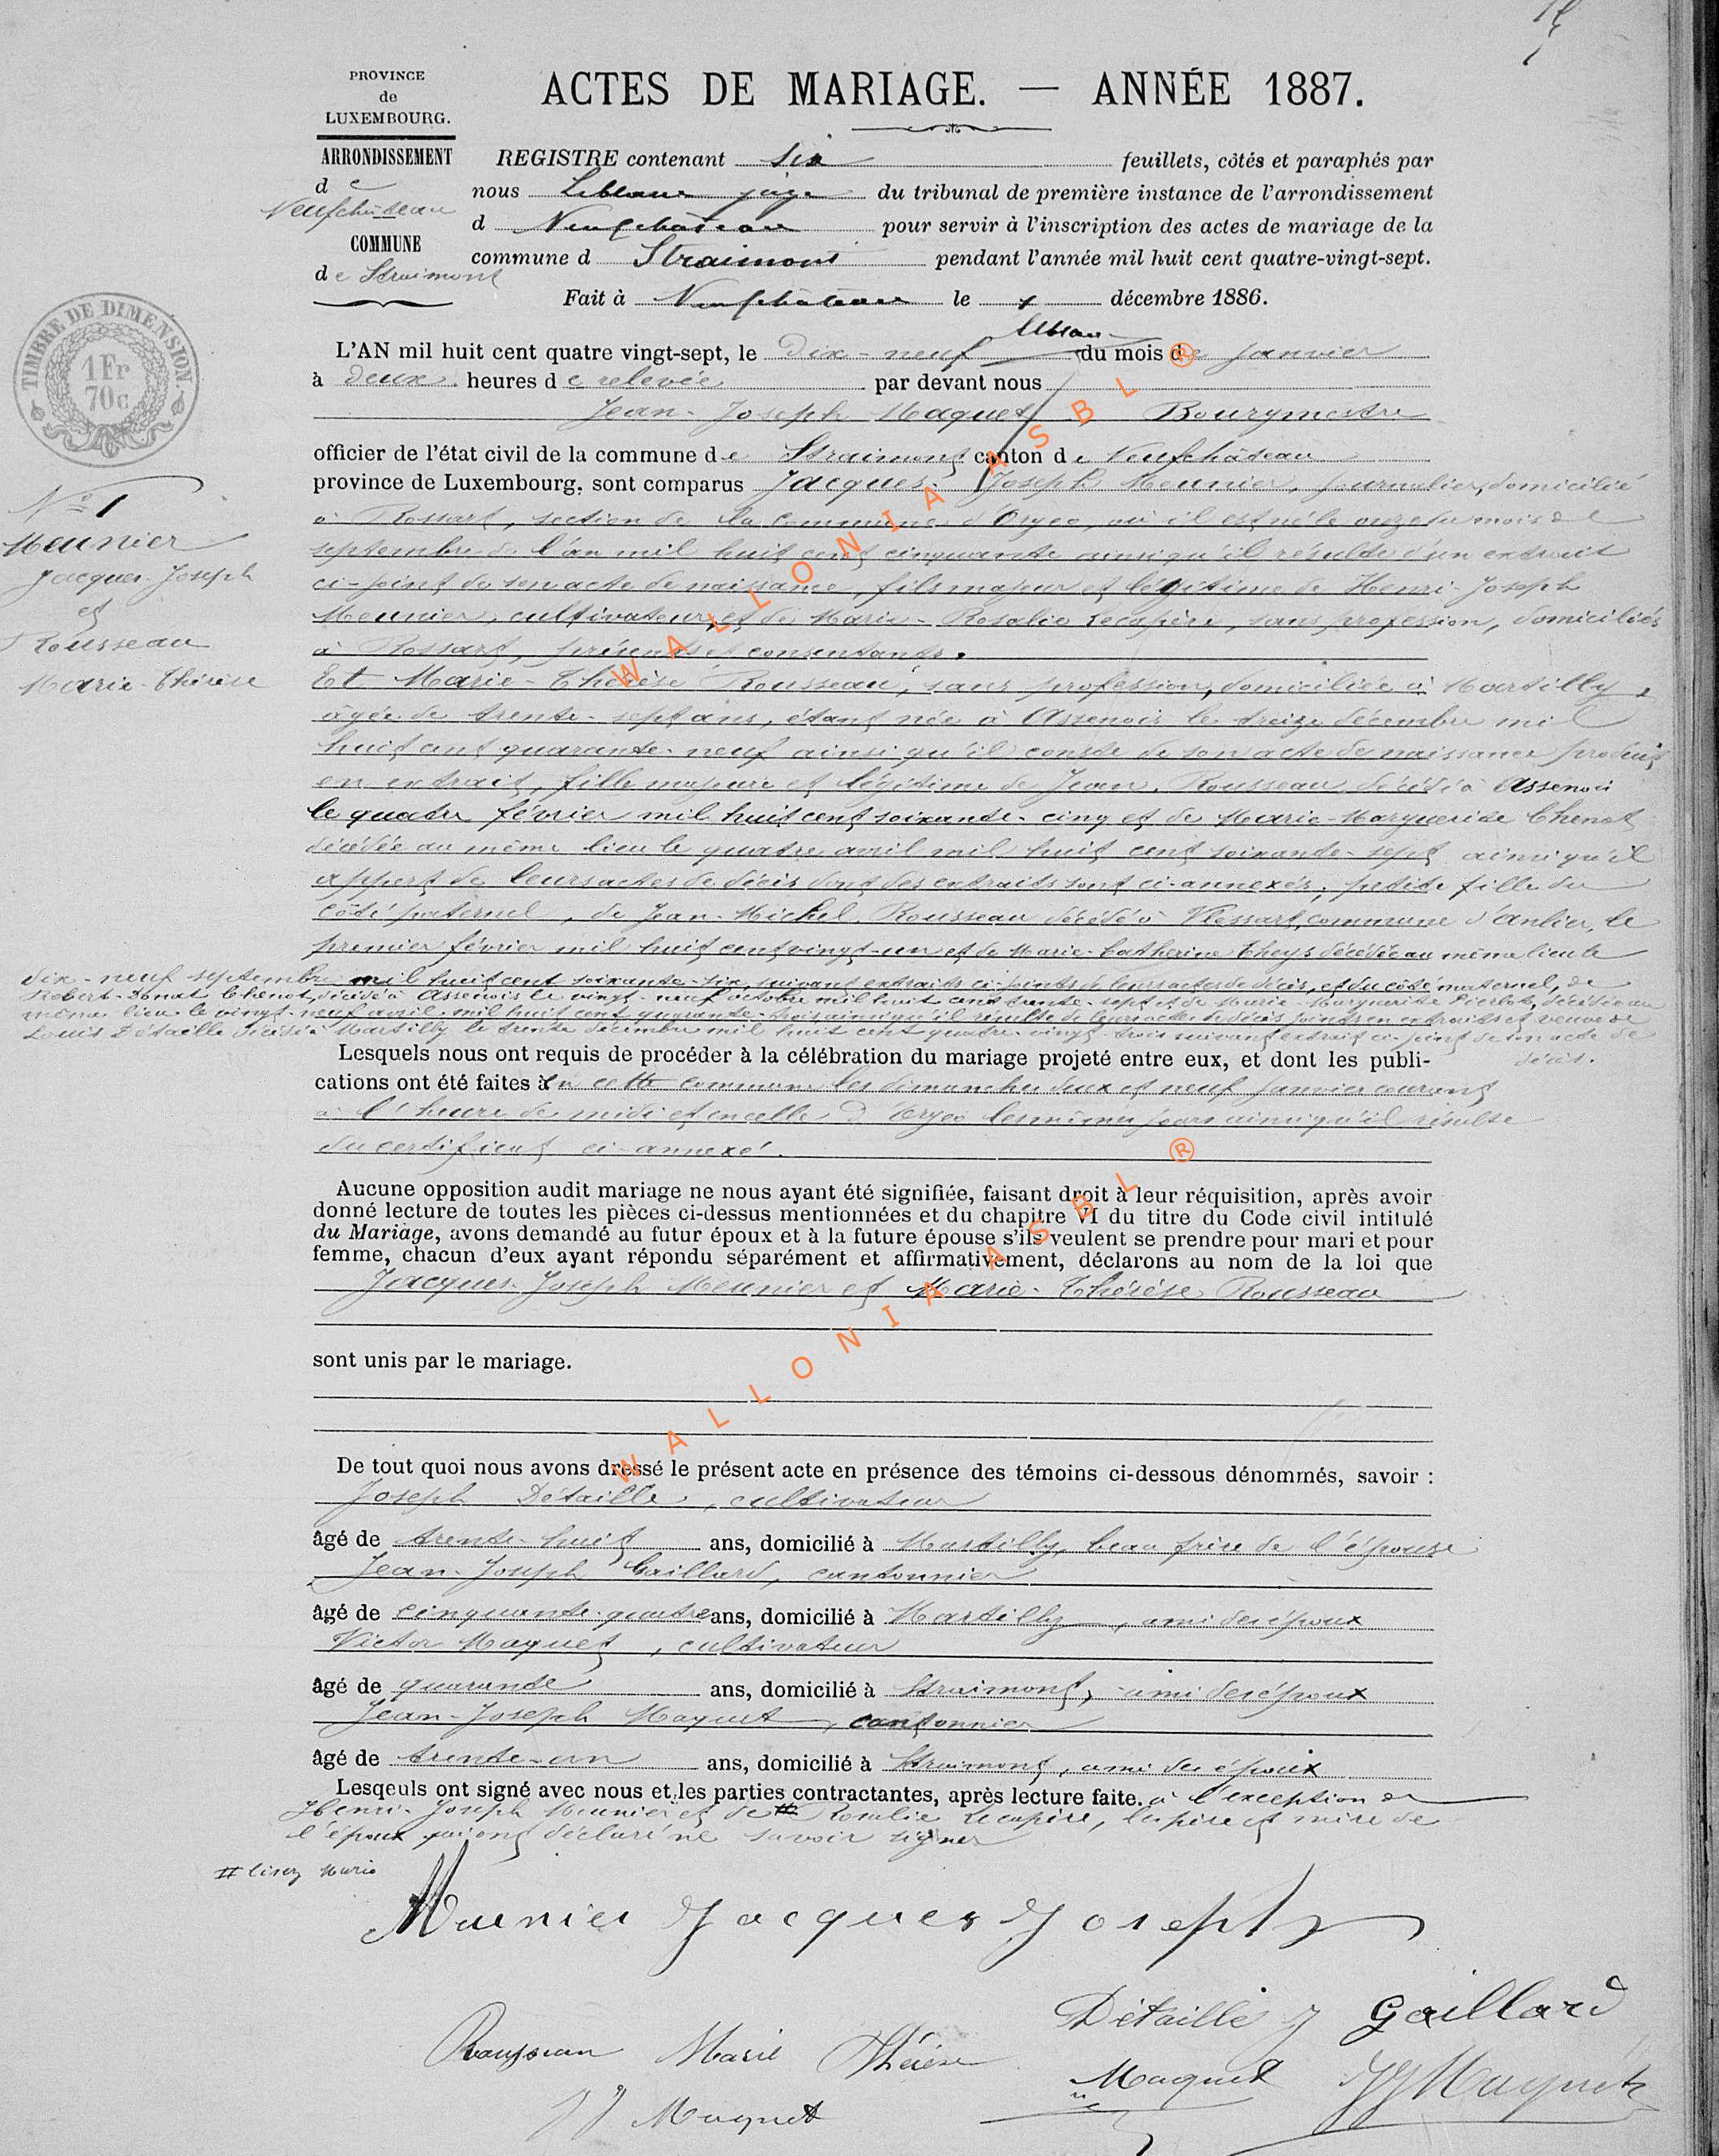 PROVINCE
de
LUXEMBOURG.
ARRONDISSEMENT
de
Neufchâteau
COMMUNE
de Straimont
TIMBRE DE DIMENSION.
1Fr
70c
ACTES DE MARIAGE. — ANNÉE 1887.
REGISTRE contenant six feuillets, côtés et paraphés par
nous Leblanc juge du tribunal de première instance de l'arrondissement
d Neufchâteau pour servir à l'inscription des actes de mariage de la
commune d Straimont pendant l'année mil huit cent quatre-vingt-sept.
Fait à Neufchâteau le décembre 1886.
Leblanc
N° 1
Meunier
Jacques-Joseph
et
Rousseau
Marie-Thérèse
L'AN mil huit cent quatre vingt-sept, le dix-neuf du mois de janvier
à deux heures de relevée par devant nous
Jean-Joseph Maquet Bourgmestre
officier de l'état civil de la commune de Straimont canton de Neufchâteau
province de Luxembourg, sont comparus Jacques-Joseph Meunier, journalier, domicilié
à Rossart, section de la commune d'Orgeo, où il est né le onze du mois de
septembre de l'an mil huit cent cinquante ainsi qu'il résulte d'un extrait
ci-joint de son acte de naissance, fils majeur et légitime de Henri-Joseph
Meunier, cultivateur, et de Marie-Rosalie Lecapère, sans profession, domiciliés
à Rossart, présents et consentants.
Et Marie-Thérèse Rousseau, sans profession, domiciliée à Martilly
âgée de trente-sept ans, étant née à Assenois le treize décembre mil
huit cent quarante-neuf ainsi qu'il conste de son acte de naissance produit
en extrait, fille majeure et légitime de Jean Rousseau décédé à Assenois
le quatre février mil huit cent soixante-cinq et de Marie-Marguerite Chenot
décédée au même lieu le quatre avril mil huit cent soixante-sept ainsi qu'il
appert de leurs actes de décès dont des extraits sont ci-annexés, petite fille du
côté paternel, de Jean-Michel Rousseau décédé à Vlessart, commune d'Anlier, le
premier février mil huit cent vingt-un et de Marie-Catherine Theys décédée au même lieu le
dix-neuf septembre mil huit cent soixante-six, suivant extraits ci-joints de leurs actes de décès, et du côté maternel, de
Hubert-Donat Chenot, décédé à Assenois le vingt-neuf octobre mil huit cent trente-sept et de Marie-Marguerite Pierlot, décédée au
même lieu le vingt-neuf avril mil huit cent quarante-trois ainsi qu'il résulte de leurs actes de décès joints en extraits et veuve de
Louis Détaille décédé à Martilly le trente décembre mil huit cent quatre-vingt-trois suivant extrait ci-joint de son acte de
décès.
Lesquels nous ont requis de procéder à la célébration du mariage projeté entre eux, et dont les publi-
cations ont été faites en cette commune les dimanches deux et neuf janvier courant
à l'heure de midi et en celle d'Orgeo les mêmes jours ainsi qu'il résulte
du certificat ci-annexé.
Aucune opposition audit mariage ne nous ayant été signifiée, faisant droit à leur réquisition, après avoir
donné lecture de toutes les pièces ci-dessus mentionnées et du chapitre VI du titre du Code civil intitulé
du Mariage, avons demandé au futur époux et à la future épouse s'ils veulent se prendre pour mari et pour
femme, chacun d'eux ayant répondu séparément et affirmativement, déclarons au nom de la loi que
Jacques-Joseph Meunier et Marie-Thérèse Rousseau
sont unis par le mariage.
De tout quoi nous avons dressé le présent acte en présence des témoins ci-dessous dénommés, savoir :
Joseph Détaille, cultivateur
âgé de trente-huit ans, domicilié à Martilly, beau frère de l'épouse
Jean-Joseph Gaillard, cantonnier
âgé de cinquante-quatre ans, domicilié à Martilly, ami des époux
Victor Maquet, cultivateur
âgé de quarante ans, domicilié à Straimont, ami des époux
Jean-Joseph Maquet, cantonnier
âgé de trente-un ans, domicilié à Straimont, ami des époux
Lesqeuls ont signé avec nous et les parties contractantes, après lecture faite. à l'exception de
Henri-Joseph Meunier et de # Rosalie Lecapère, les père et mère de
l'époux qui ont déclaré ne savoir signer
# lisez Marie
Meunier Jacques Joseph
Détaille J Gaillard
Rousseau Marie Thérèse
Maquet JJ Maquet
JJ Maquet
WALLONIA ASBL ®
WALLONIA ASBL ®